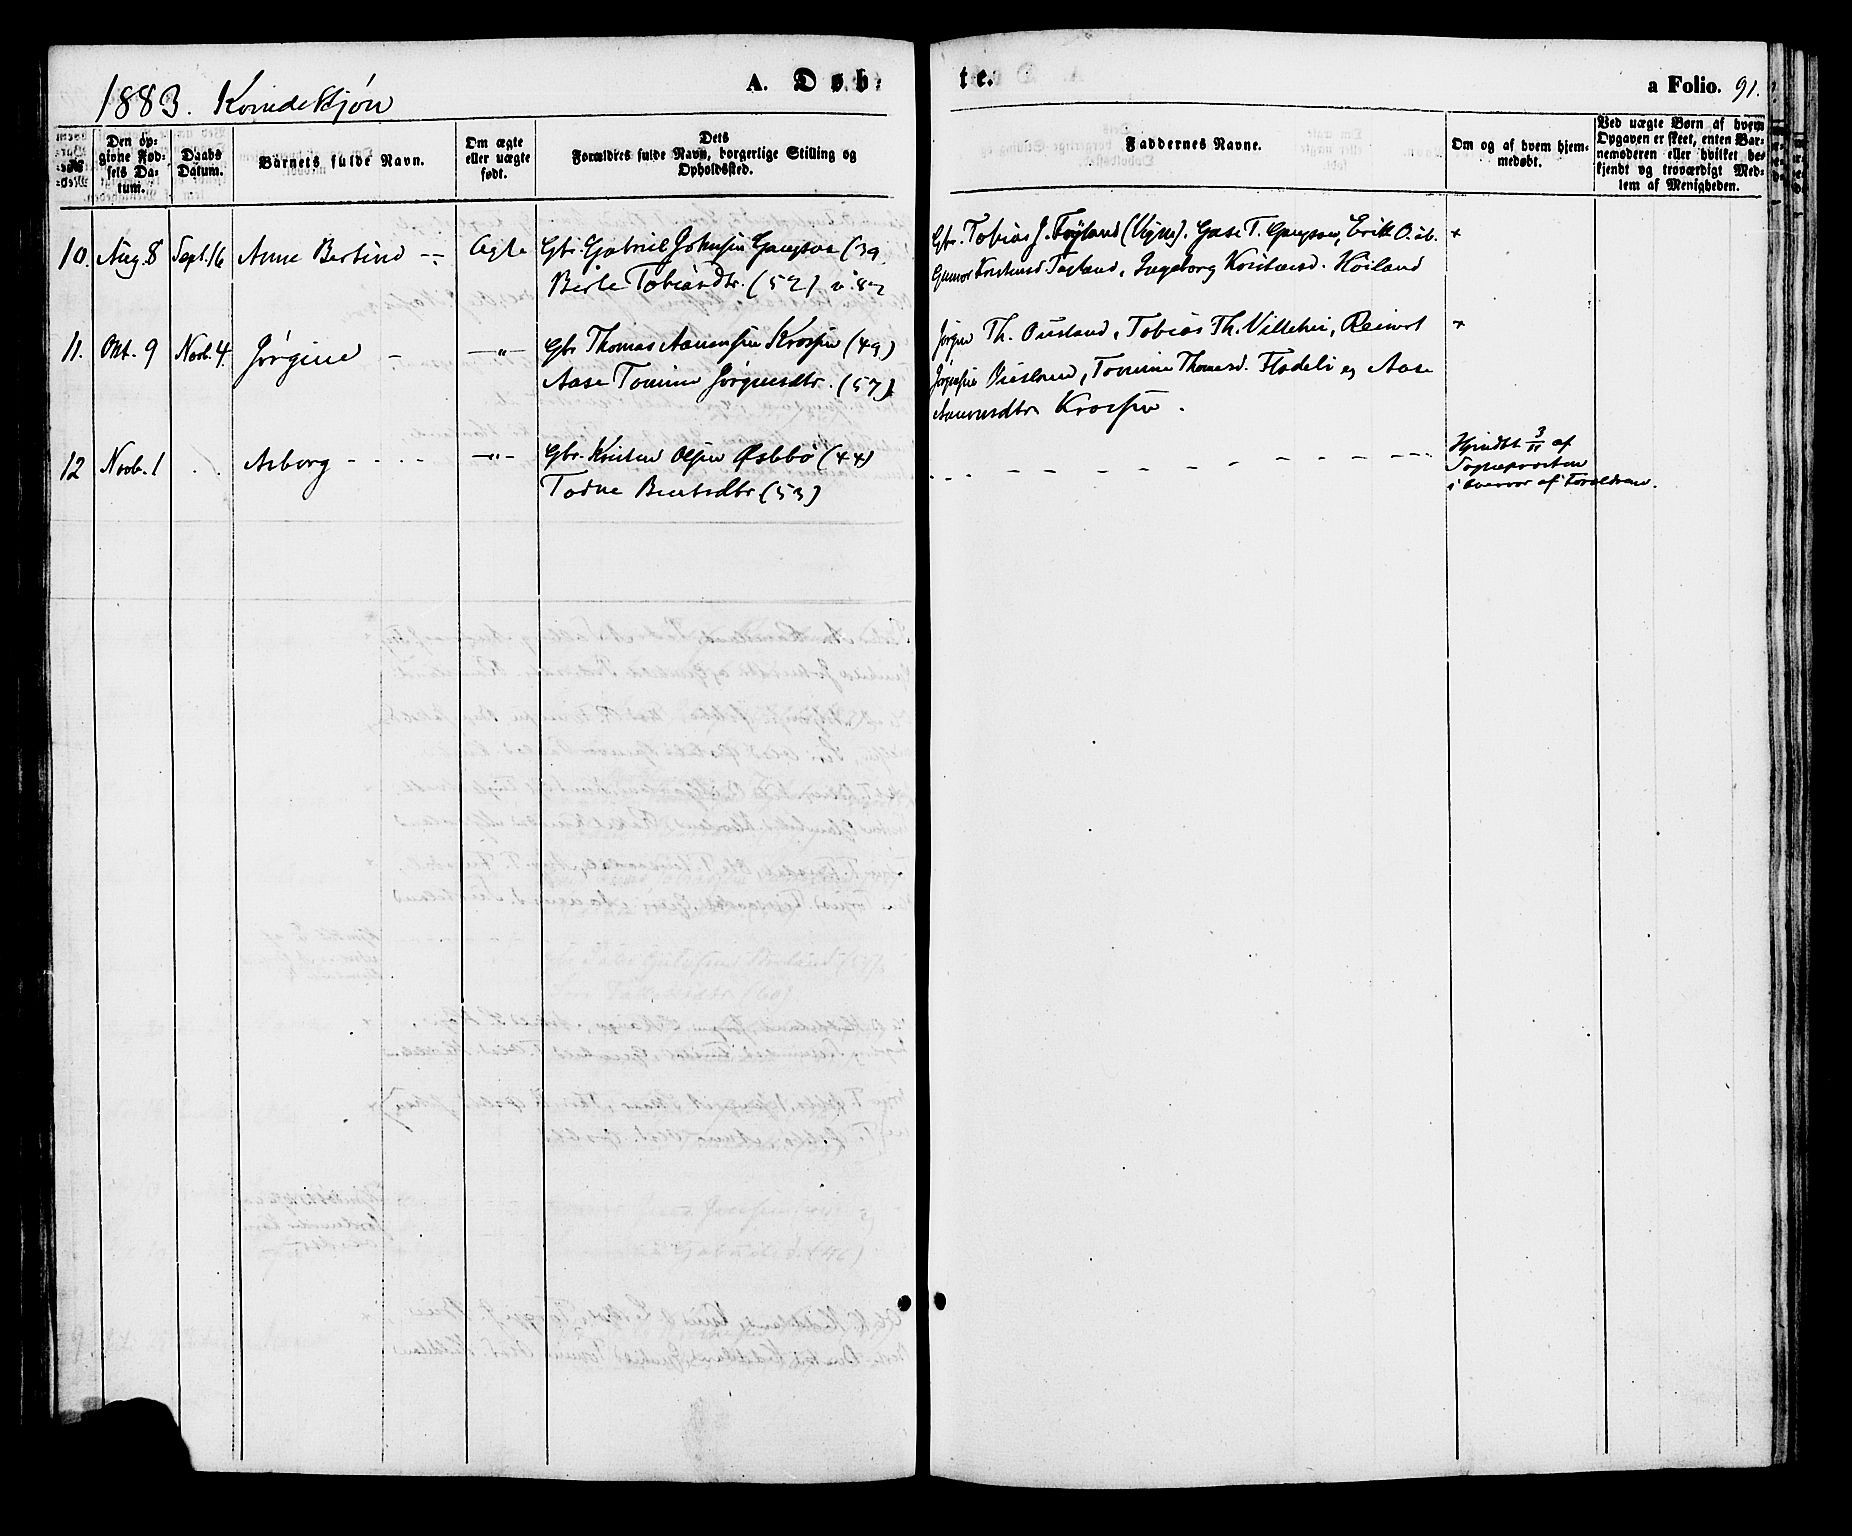 1883. Kvindekjøn
A. Døb-
te.
a Folio. 91.
No.
Den op-
givne Fød-
sels Da-
tum.
Daabs
Datum.
Barnets fulde Navn.
Om ægte
eller uægte
født.
Dets
Forældres fulde Navn, borgerlige Stilling og
Opholdssted.
Faddernes Navne.
Om og af hvem hjem-
medøbt.
Ved uægte Børn af hvem
Opgaven er skeet, enten Bar-
nemoderen eller hvilket be-
kjendt og troværdigt Med-
lem af Menigheden.
10. Aug. 8 Sept. 16 Anne Bertine Ægte Gbr. Gabriel Johnsen (39
Berte Tobiasdtr. (52)
Gbr. Tobias J. Fogland (Vigne). T. Erik O. ib. +
Gunnor Fogland, Ingeborg Høiland
11. Okt. 9 Novb. 4. Jørgine —"— Gbr. Thomas Aanensen Krossen (49)
Aase Tomine Jørgensdtr. (57)
Jørgen Th. Ousland, Tobias Th. Reinert +
Jørgensen Ousland, Tomine Thomasd. og Aase
Krossen.
12 Novb. 1 Asborg - - - - —"— Gbr. Kristen Olsen Østebø (44)
Todne (53)
Hjemdbt 3/11 af
Sogneprosten
i Overvær af Forældrene.